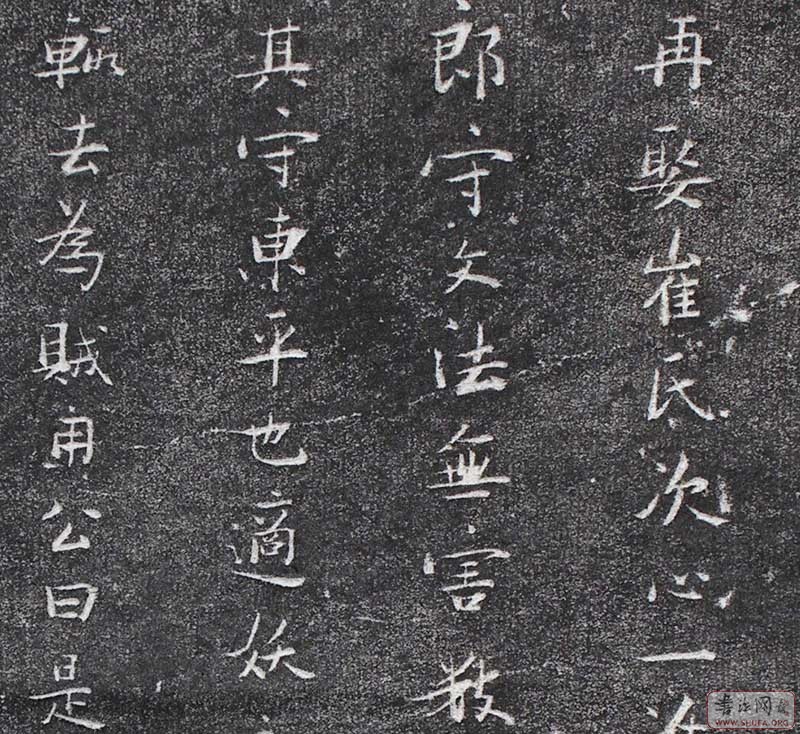 再娶崔氏次心一
郎守文法無害
其守東平也適妖
輒去為賊用公曰是
書法网
WWW.SHUFA.ORG